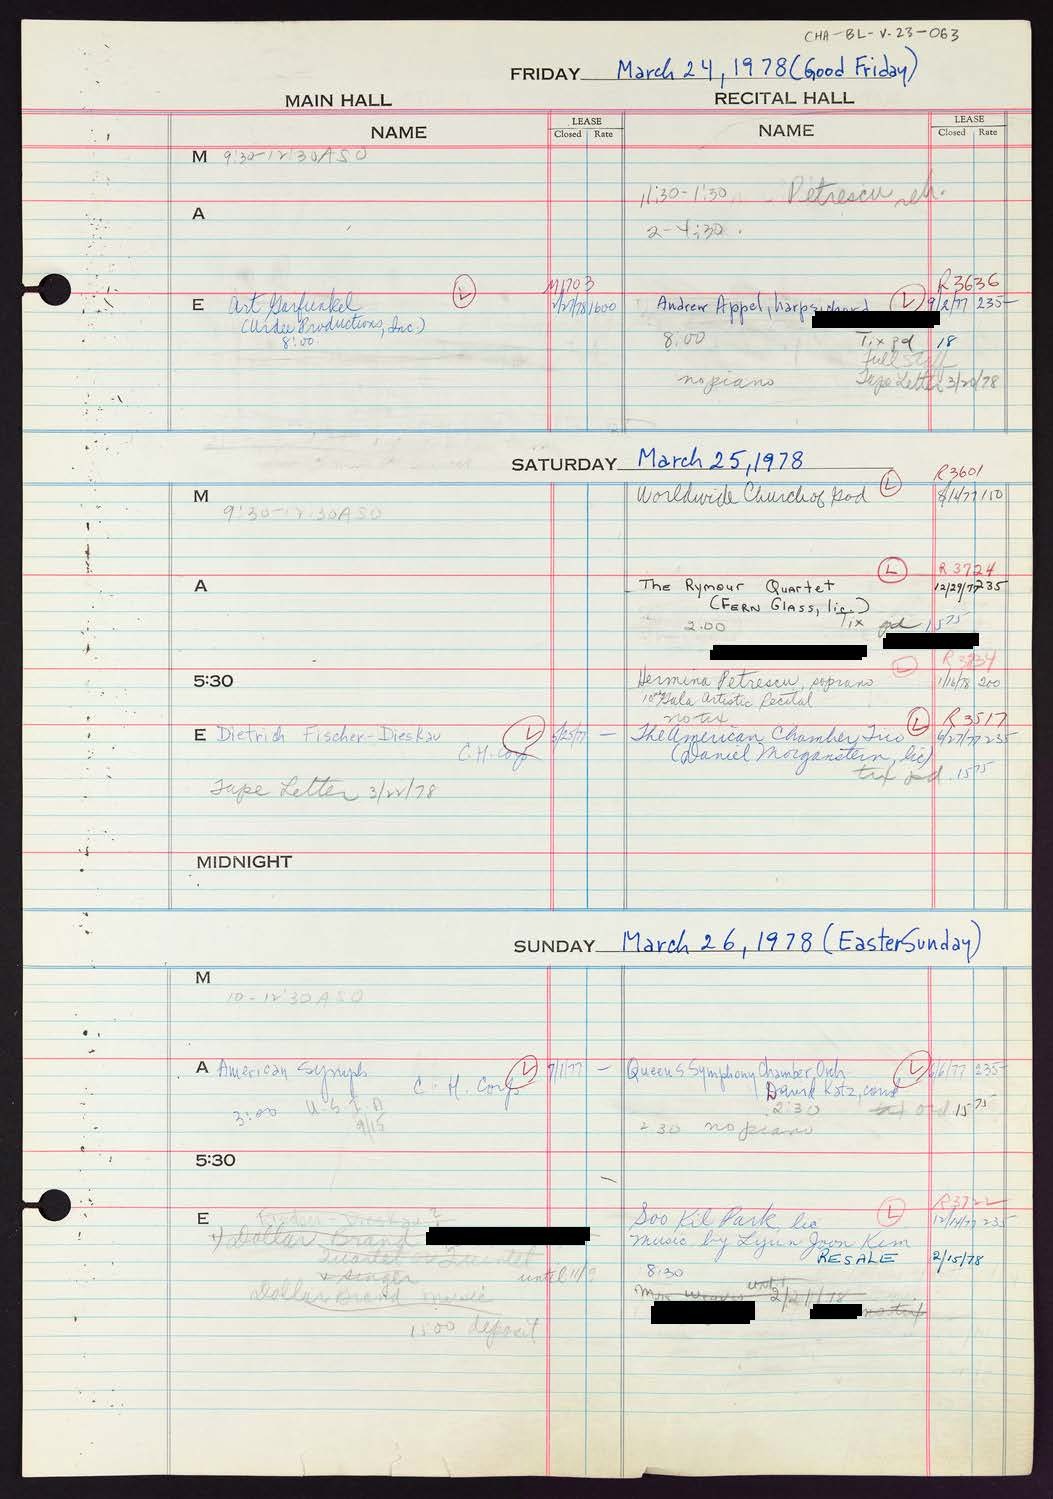 CHA-BL-V.23-063
FRIDAY March 24, 1978 (Good Friday)
MAIN HALL RECITAL HALL
NAME LEASE Closed Rate NAME LEASE Closed Rate
M 9:30-12:30 ASO
11:30-1:30 Petrescu reh.
A
2-4:30.
M1703 R3636
E Art Garfunkel L 1600 Andrew Appel, harpsichord L 9/2/77 235-
(Urdee Productions, Inc.)
8:00 8:00 Tix pd 18
Full Staff
no piano Tape Letter 3/20/78
SATURDAY March 25, 1978
R3601
M Worldwide Church of God L 8/1/77 110
9:30-12:30 ASO
R3724
A The Rymour Quartet L 12/29/77 235
(FERN GLASS, lic.)
2.00 Tix pd 15 75
5:30 Hermina Petrescu, soprano L 1/16/78 200
10th Gala Artistic Recital
no tix R3517
E Dietrich Fischer-Dieskau L 5/25/77 - The American Chamber Trio L 6/27/77 235
C.H. Corp (Daniel Morganstern, lic)
tix pd. 15 75
Tape Letter 3/22/78
MIDNIGHT
SUNDAY March 26, 1978 (Easter Sunday)
M
10-12:30 ASO
A American Symph L 7/1/77 - Queens Symphony Chamber Orch L 6/6/77 235-
C. H. Corp David Katz, cond
3:00 2:30 15 75
9/15
2 30 no piano
5:30
R3722
E Fischer-Dieskau ? Soo Kil Park, lic L 12/14/77 235
Dollar Brand Music by Lyun Joon Kim
Quartet or Quintet RESALE 2/15/78
+ singer until 11/9 8:30
Dollar Brand music until
1500 deposit no tix